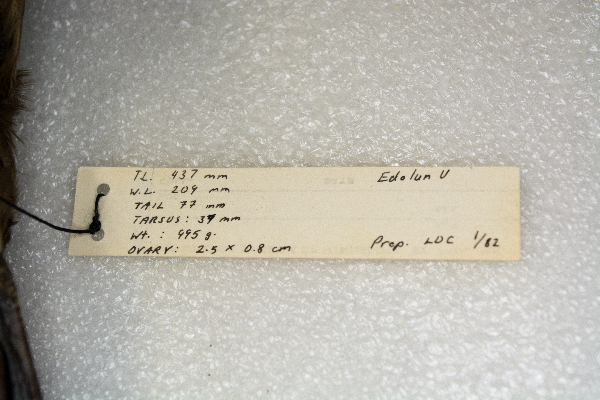 TL. 437 mm
W.L. 209 mm
TAIL 77 mm
TARSUS: 37 mm
Wt. : 495 g.
OVARY: 2.5 x 0.8 cm
Edolun V
Prep. LDC 1/82